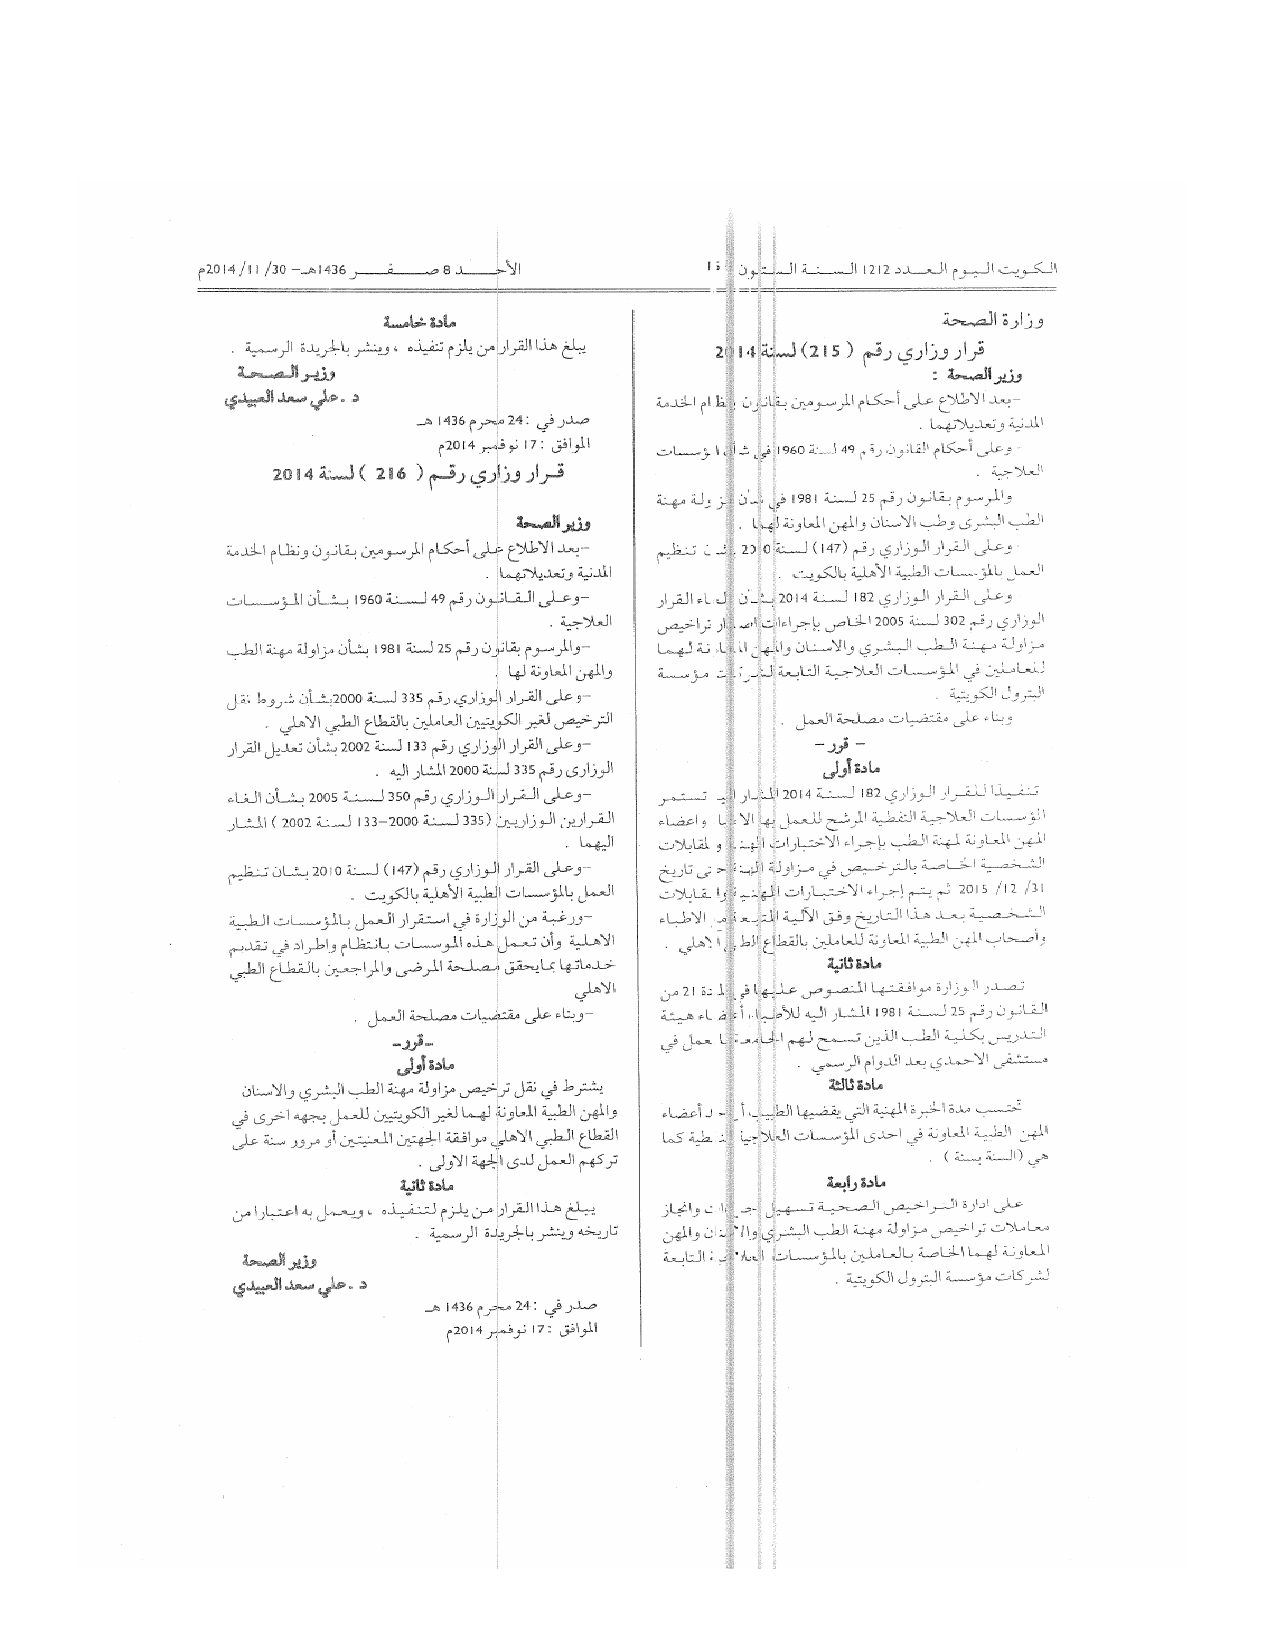 الكويت اليوم العدد 1212 السنة الستون
الأحـــد 8 صـــفـــر 1436هـ – 30/ 11/ 2014م
وزارة الصحة
قرار وزاري رقم ( 215) لسنة 2014
وزير الصحة :
-بعد الاطلاع على أحكام المرسومين بقانون ونظام الخدمة
المدنية وتعديلاتهما .
- وعلى أحكام القانون رقم 49 لسنة 1960 في شأن المؤسسات
العلاجية .
والمرسوم بقانون رقم 25 لسنة 1981 في شأن مزاولة مهنة
الطب البشري وطب الاسنان والمهن المعاونة لهما .
- وعلى القرار الوزاري رقم (147) لسنة 2010 تنظيم
العمل بالمؤسسات الطبية الأهلية بالكويت .
وعلى القرار الوزاري 182 لسنة 2014 بشأن الغاء القرار
الوزاري رقم 302 لسنة 2005 الخاص بإجراءات اصدار تراخيص
مزاولة مهنة الطب البشري والاسنان والمهن المعاونة لهما
للعاملين في المؤسسات العلاجية التابعة لشركات مؤسسة
البترول الكويتية .
وبناء على مقتضيات مصلحة العمل .
– قرر –
مادة أولى
تنفيذا للقرار الوزاري 182 لسنة 2014 المشار اليه تستمر
المؤسسات العلاجية النفطية المرشح للعمل بها الاطباء واعضاء
المهن المعاونة لمهنة الطب بإجراء الاختبارات المهنية والمقابلات
الشخصية الخاصة بالترخيص في مزاولة المهنة حتى تاريخ
31/ 12/ 2015 ثم يتم إجراء الاختبارات المهنية والمقابلات
الشخصية بعد هذا التاريخ وفق الآلية المتبعة من الاطباء
وأصحاب المهن الطبية المعاونة للعاملين بالقطاع الطبي الاهلي .
مادة ثانية
تصدر الوزارة موافقتها المنصوص عليها في المادة 21 من
القانون رقم 25 لسنة 1981 المشار اليه للأطباء أعضاء هيئة
التدريس بكلية الطب الذين تسمح لهم الجامعة بالعمل في
مستشفى الاحمدي بعد الدوام الرسمي .
مادة ثالثة
تحتسب مدة الخبرة المهنية التي يقضيها الطبيب أو أحد أعضاء
المهن الطبية المعاونة في احدى المؤسسات العلاجية النفطية كما
هي (السنة بسنة ) .
مادة رابعة
على ادارة التراخيص الصحية تسهيل إجراءات وانجاز
معاملات تراخيص مزاولة مهنة الطب البشري والاسنان والمهن
المعاونة لهما الخاصة بالعاملين بالمؤسسات العلاجية التابعة
لشركات مؤسسة البترول الكويتية .
مادة خامسة
يبلغ هذا القرار من يلزم تنفيذه ، وينشر بالجريدة الرسمية .
وزير الصحة
د .علي سعد العبيدي
صدر في : 24 محرم 1436 هـ
الموافق : 17 نوفمبر 2014م
قرار وزاري رقم ( 216 ) لسنة 2014
وزير الصحة
–بعد الاطلاع على أحكام المرسومين بقانون ونظام الخدمة
المدنية وتعديلاتهما .
–وعلى القانون رقم 49 لسنة 1960 بشأن المؤسسات
العلاجية .
–والمرسوم بقانون رقم 25 لسنة 1981 بشأن مزاولة مهنة الطب
والمهن المعاونة لها .
–وعلى القرار الوزاري رقم 335 لسنة 2000بشأن شروط نقل
الترخيص لغير الكويتيين العاملين بالقطاع الطبي الاهلي .
–وعلى القرار الوزاري رقم 133 لسنة 2002 بشأن تعديل القرار
الوزاري رقم 335 لسنة 2000 المشار اليه .
–وعلى القرار الوزاري رقم 350 لسنة 2005 بشأن الغاء
القرارين الوزاريين (335 لسنة 2000–133 لسنة 2002 ) المشار
اليهما .
–وعلى القرار الوزاري رقم (147) لسنة 2010 بشأن تنظيم
العمل بالمؤسسات الطبية الأهلية بالكويت .
–ورغبة من الوزارة في استقرار العمل بالمؤسسات الطبية
الاهلية وأن تعمل هذه المؤسسات بانتظام واطراد في تقديم
خدماتها بما يحقق مصلحة المرضى والمراجعين بالقطاع الطبي
الاهلي
–وبناء على مقتضيات مصلحة العمل .
–قرر–
مادة أولى
يشترط في نقل ترخيص مزاولة مهنة الطب البشري والاسنان
والمهن الطبية المعاونة لهما لغير الكويتيين للعمل بجهه اخرى في
القطاع الطبي الاهلي موافقة الجهتين المعنيتين أو مرور سنة على
تركهم العمل لدى الجهة الاولى .
مادة ثانية
يبلغ هذا القرار من يلزم لتنفيذه ، ويعمل به اعتبارا من
تاريخه وينشر بالجريدة الرسمية .
وزير الصحة
د .علي سعد العبيدي
صدر في : 24 محرم 1436 هـ
الموافق : 17 نوفمبر 2014م